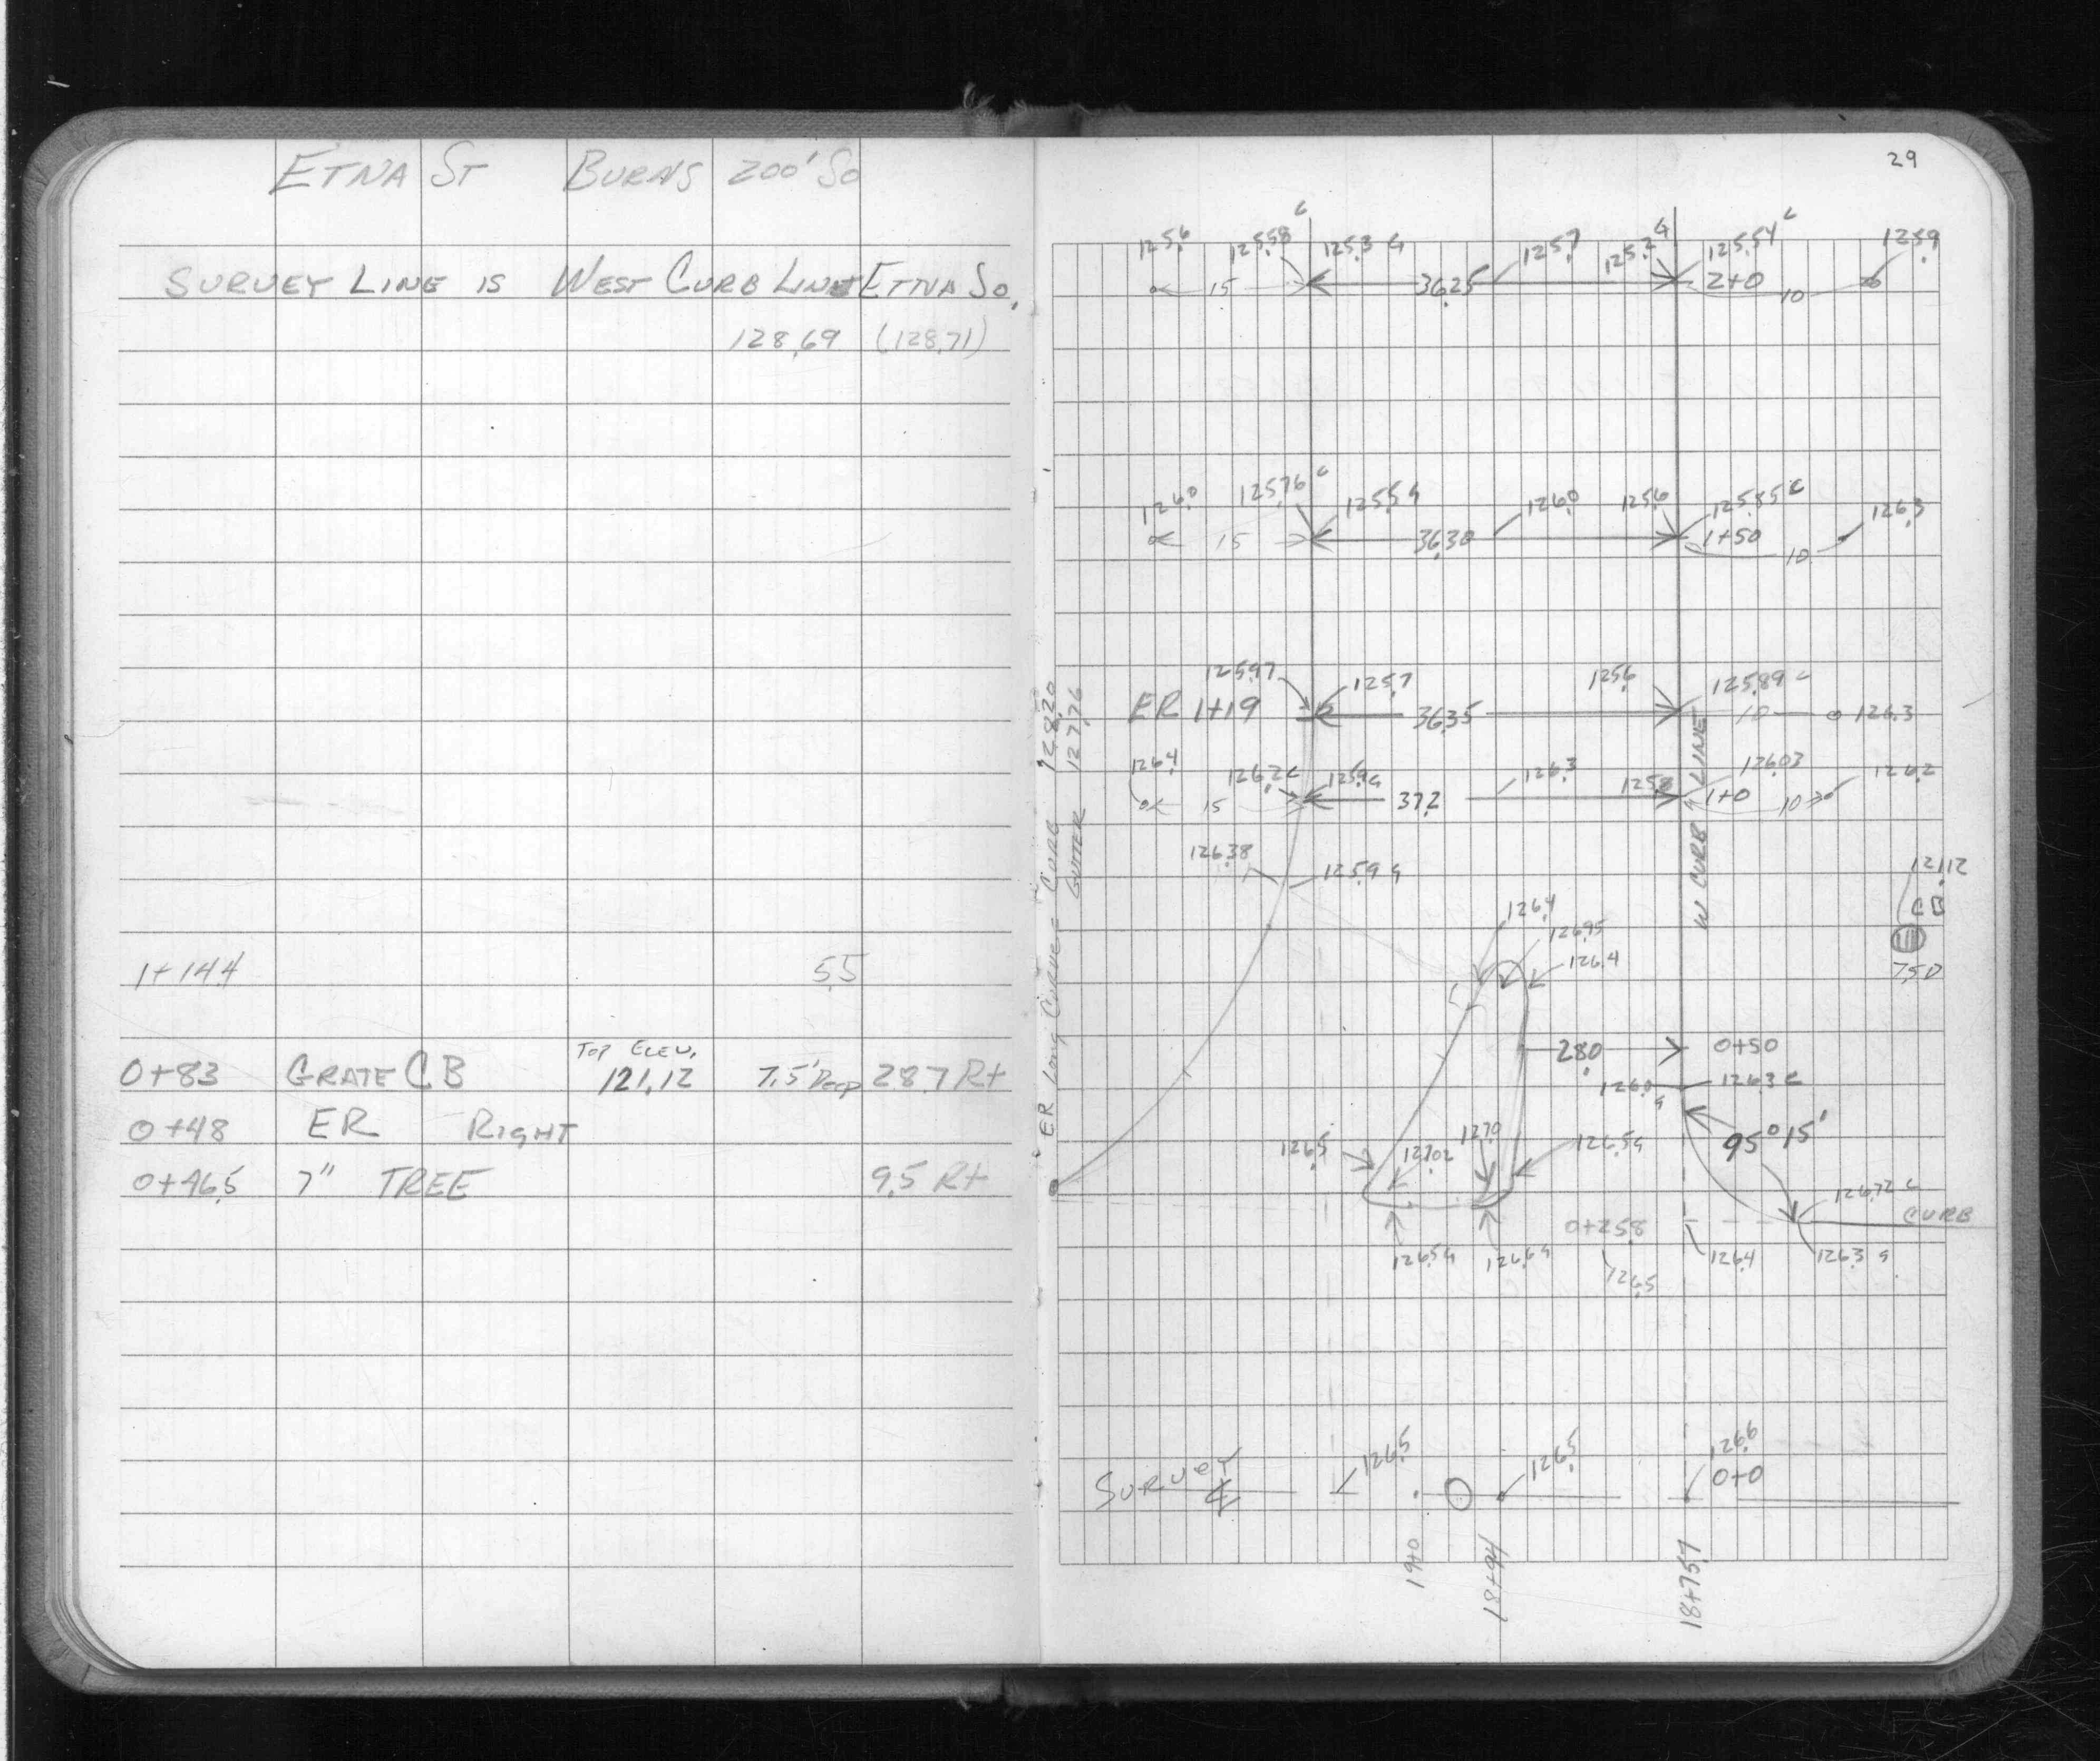 ETNA ST BURNS 200' So
SURVEY LINE IS WEST CURB LINE ETNA So.
128.69 (128.71)
1+14.4 5.5
0+83 GRATE CB TOP ELEV. 121.12 7.5' DEEP 28.7 Rt
0+48 ER RIGHT
0+46.5 7" TREE 9.5 Rt
29
125.6 125.58 c 125.3 G 125.7 125.2 G 125.54 c 125.9
15 36.25 2+0 10
126.0 125.76 c 125.5 G 126.0 125.6 125.85 c 126.3
15 36.30 1+50 10
125.97 125.7 125.6 125.89 c
ER 1+19 36.35 10 126.3
126.4 126.2 c 125.9 G 126.3 125.8 126.03 126.2
15 37.2 1+0 10
W CURB LINE
126.38 125.9 G
121.12
CB
7.5 D
126.4
126.95
126.4
28.0 0+50
126.0 G 126.3 c
95°15'
126.5 127.02 127.0 126.5 G
126.72 c
CURB
0+25.8
126.5 G 126.6 G 126.5 126.4 126.3 G
ER Long Curve = CURB 128.20
GUTTER 127.76
126.5 126.5 126.6
SURVEY ℄ 0+0
19+0 18+94 18+75.7